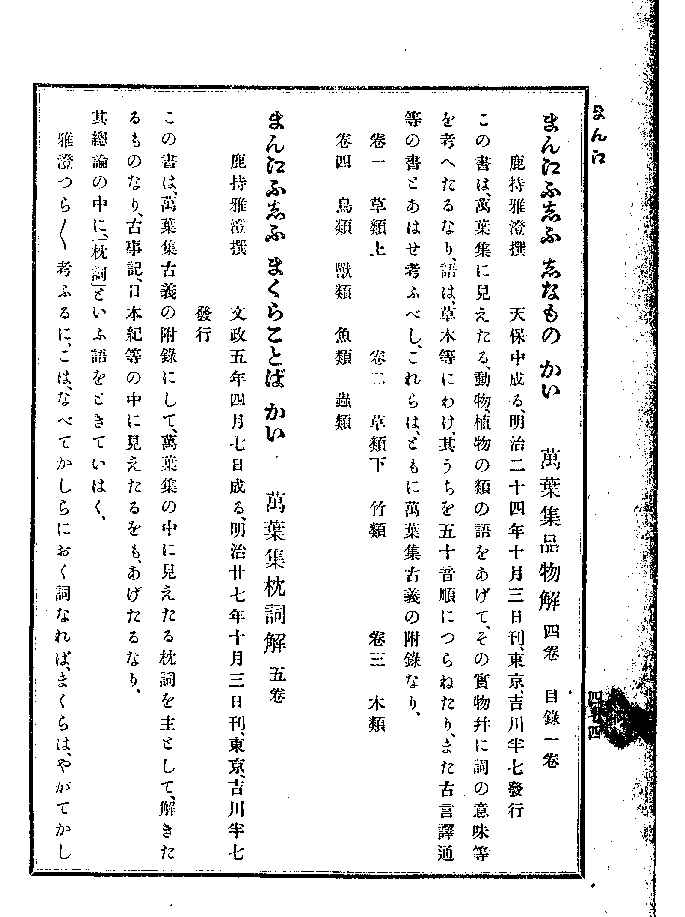 まんえ
まんえふゑふ ゑなもの かい 萬葉集品物解 四卷 目錄一卷
鹿持雅澄撰 天保中成る、明治二十四年十月三日刊、東京、吉川半七發行
この書は、萬葉集に見えたる、動物、植物の類の語をあげて、その實物幷に詞の意味等
を考へたるなり、語は、草木等にわけ、其うちを五十音順につらねたり、また古言譯通
等の書とあはせ考ふべし、これらは、ともに萬葉集古義の附錄なり、
卷一 草類上 卷二 草類下 竹類 卷三 木類
卷四 鳥類 獸類 魚類 蟲類
まんえふゑふ まくらことば かい 萬葉集枕詞解 五卷
鹿持雅澄撰 文政五年四月七日成る、明治廿七年十月三日刊、東京、吉川半七
發行
この書は、萬葉集古義の附錄にして、萬葉集の中に見えたる枕詞を主として、解きた
るものなり、古事記、日本紀等の中に見えたるをも、あげたるなり、
其總論の中に、「枕詞」といふ語をときていはく、
雅澄つら〱考ふるに、こは、なべてかしらにおく詞なれば、まくらは、やがてかし